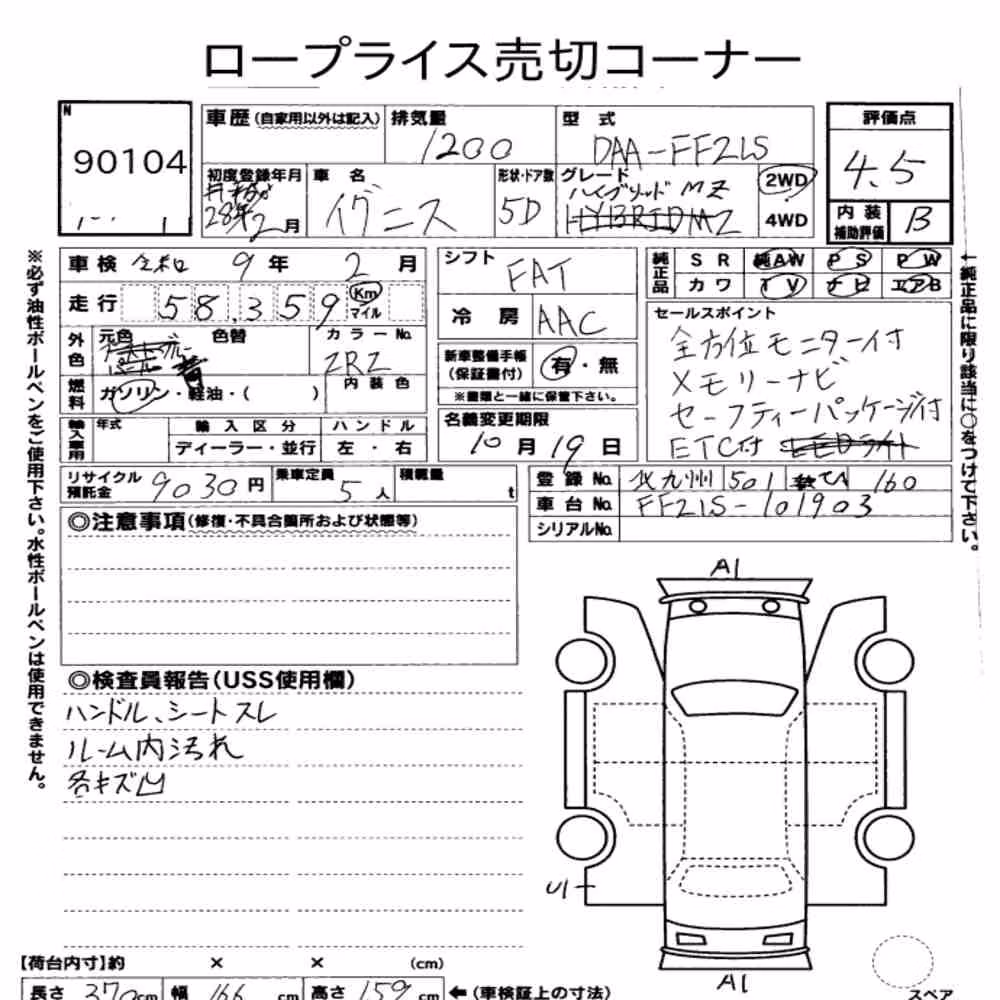 ロープライス売切コーナー
N
90104
車歴 (自家用以外は記入)
排気量
1200
型式
DAA-FF21S
評価点
4.5
内装補助評価
B
初度登録年月
28年2月
車名
イグニス
形状・ドア数
5D
グレード
ハイブリッドMZ
HYBRID MZ
2WD
4WD
※必ず油性ボールペンをご使用下さい。水性ボールペンは使用できません。
車検 令和 9年 2月
走行 58,359 Km マイル
外色
元色
色替
青
カラーNo.
ZRZ
燃料
ガソリン・軽油・( )
内装色
輸入車用
年式
輸入区分
ディーラー・並行
ハンドル
左・右
シフト
FAT
冷房
AAC
新車整備手帳
(保証書付)
有・無
※書類と一緒に保管下さい。
名義変更期限
10月19日
純正品
SR 純AW PS PW
カワ TV ナビ エアB
セールスポイント
全方位モニター付
メモリーナビ
セーフティーパッケージ付
ETC付
←純正品に限り該当に○をつけて下さい。
リサイクル預託金
9030円
乗車定員
5人
積載量
t
登録No.
北九州 501 160
車台No.
FF21S-101903
シリアルNo.
◎注意事項(修復・不具合箇所および状態等)
◎検査員報告(USS使用欄)
ハンドル、シートスレ
ルーム内汚れ
各キズ凹
A1
U1
A1
スペア
【荷台内寸】約 × × (cm)
長さ 370cm 幅 166cm 高さ 159cm ←(車検証上の寸法)